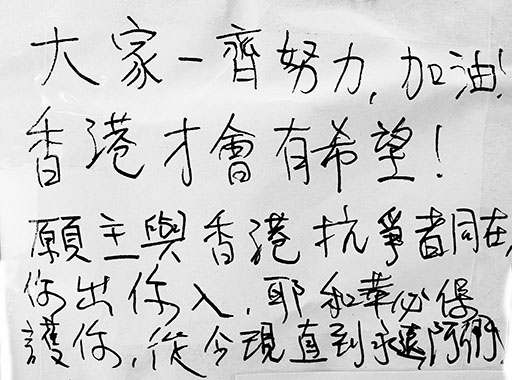 大家一齊努力,加油!
香港才會有希望!
願主與香港抗爭者同在,
你出你入,耶和華必保
護你,從今現直到永遠阿們